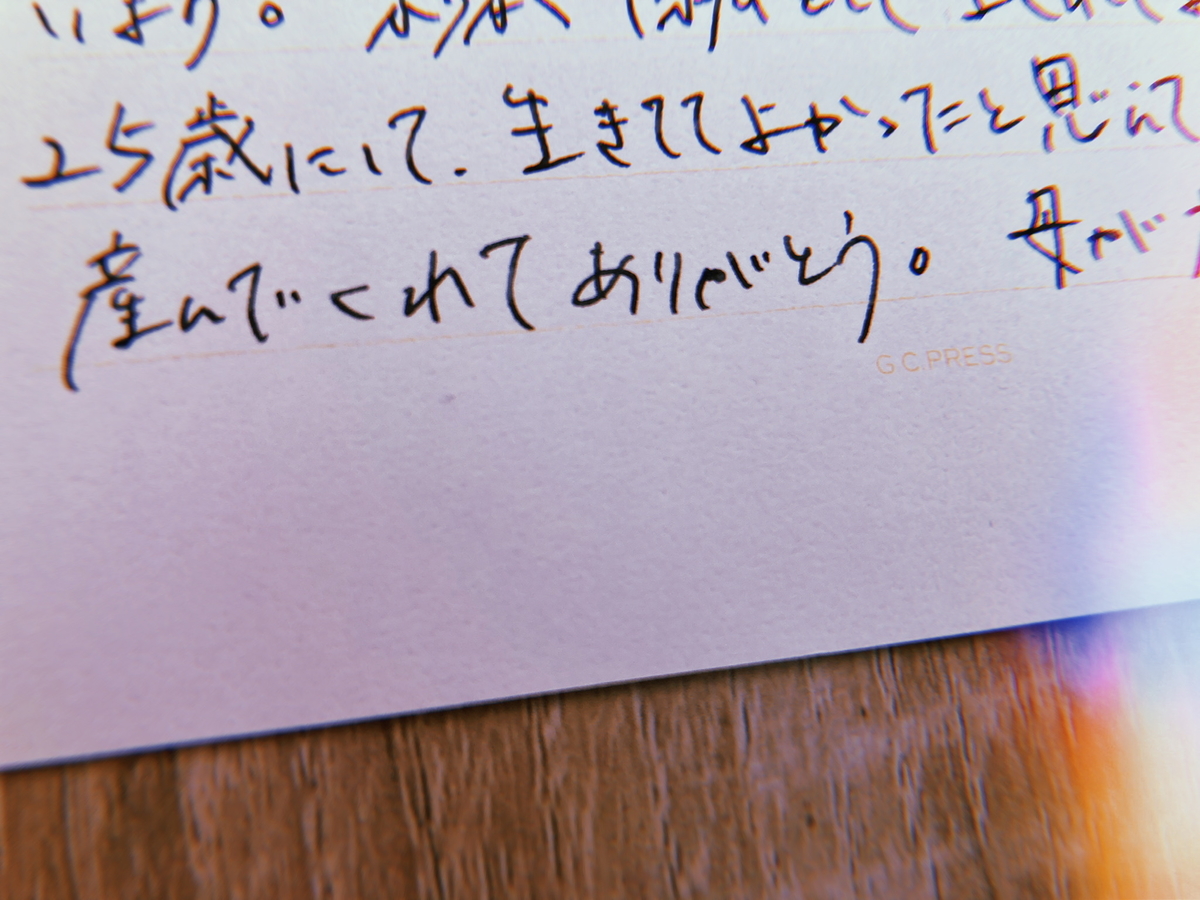 います。
25歳にいて、生きててよかったと思えて
産んでくれてありがとう。母が
G.C.PRESS